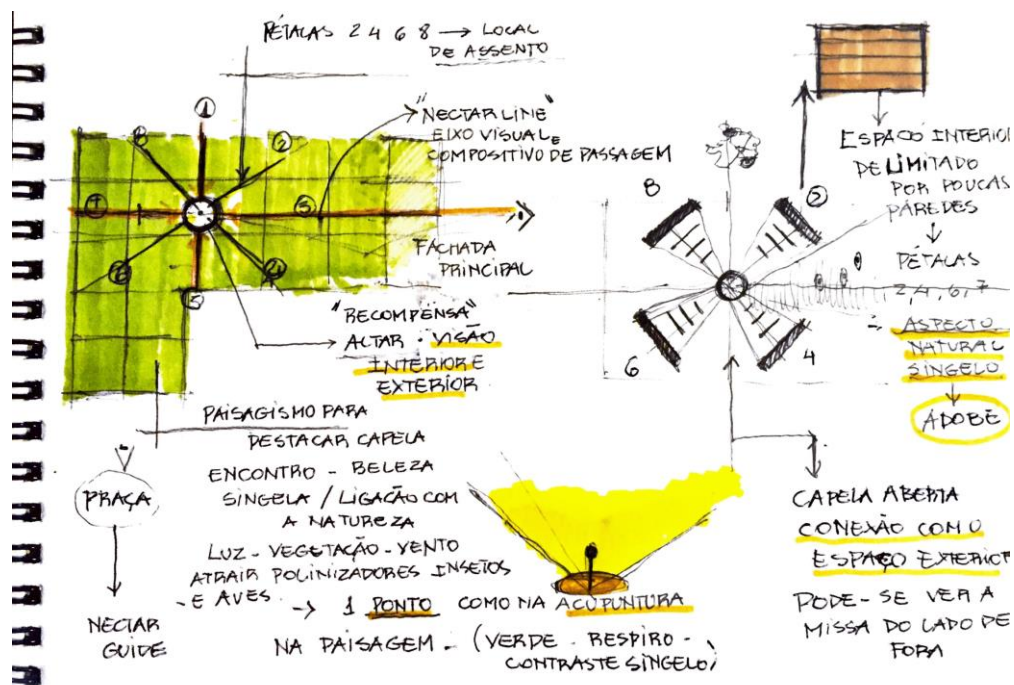 PÉTALAS 2 4 6 8 → LOCAL
DE ASSENTO
1
8
2
7
3
6
4
5
"NECTAR LINE"
EIXO VISUAL E
COMPOSITIVO DE PASSAGEM
FACHADA
PRINCIPAL
"RECOMPENSA"
ALTAR - VISÃO
INTERIOR E
EXTERIOR
PAISAGISMO PARA
DESTACAR CAPELA
ENCONTRO - BELEZA
SINGELA / LIGAÇÃO COM
A NATUREZA
LUZ - VEGETAÇÃO - VENTO
ATRAIR POLINIZADORES INSETOS
- E AVES.
→ 1 PONTO COMO NA ACUPUNTURA
NA PAISAGEM - (VERDE - RESPIRO -
CONTRASTE SINGELO)
PRAÇA
NECTAR
GUIDE
8
2
6
4
ESPAÇO INTERIOR
DELIMITADO
POR POUCAS
PAREDES
PÉTALAS
2, 4, 6, 7
ASPECTO
NATURAL
SINGELO
ADOBE
CAPELA ABERTA
CONEXÃO COM O
ESPAÇO EXTERIOR
PODE-SE VER A
MISSA DO LADO DE
FORA